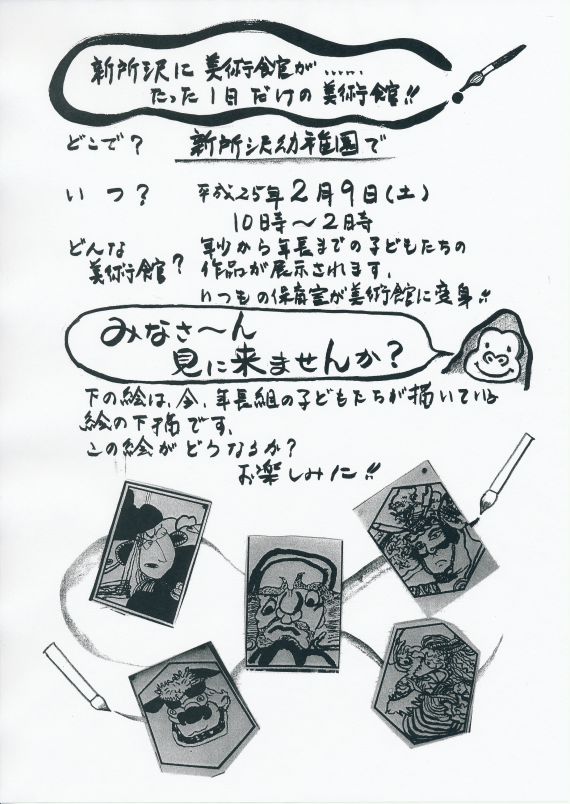 新所沢に美術館が……
たった1日だけの美術館!!
どこで? 新所沢幼稚園で
いつ? 平成25年2月9日(土)
10時〜2時
どんな美術館? 年少から年長までの子どもたちの
作品が展示されます。
いつもの保育室が美術館に変身!!
みなさ〜ん
見に来ませんか?
下の絵は、今、年長組の子どもたちが描いている
絵の下描です。
この絵がどうなるか?
お楽しみに!!